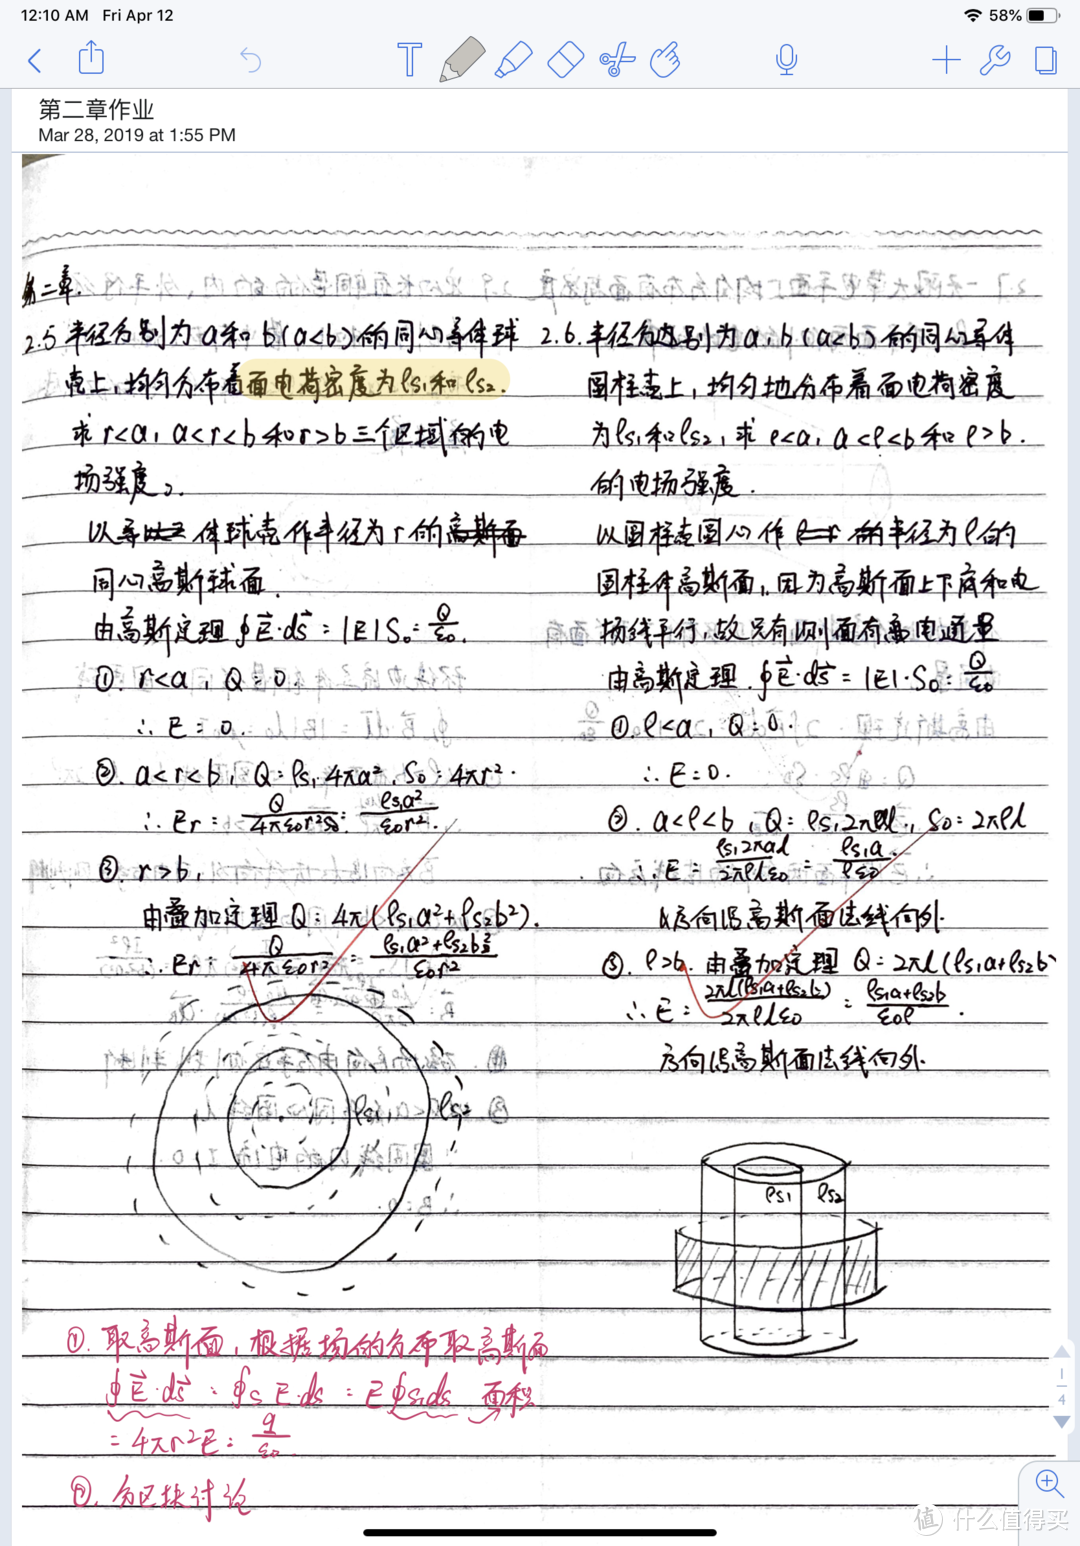 12:10 AM Fri Apr 12
58%
第二章作业
Mar 28, 2019 at 1:55 PM
第二章.
2.5 半径分别为a和b(a<b)的同心导体球
壳上,均匀分布着面电荷密度为ρs1和ρs2.
求 r<a, a<r<b 和r>b三个区域的电
场强度.
以导体球壳作半径为r的
同心高斯球面.
由高斯定理 ∮E⃗·ds⃗ = |E|S₀ = Q/ε₀.
①. r<a, Q=0.
∴ E=0.
②. a<r<b, Q=ρs1·4πa², S₀=4πr².
∴ Er = Q/4πε₀r² = ρs1a²/ε₀r².
③ r>b,
由叠加定理 Q=4π(ρs1a²+ρs2b²).
∴ Er = Q/4πε₀r² = ρs1a²+ρs2b²/ε₀r²
ρs1 ρs2
①. 取高斯面,根据场的分布取高斯面
∮E⃗·ds⃗ = ∮s E·ds = E∮s ds 面积
= 4πr²E = q/ε₀
②. 分区块讨论
2.6. 半径分别为a,b(a<b)的同心导体
圆柱壳上,均匀地分布着面电荷密度
为ρs1和ρs2,求 ρ<a, a<ρ<b 和 ρ>b.
的电场强度.
以圆柱壳圆心作半径为ρ的
圆柱体高斯面,因为高斯面上下底和电
场线平行,故只有侧面有电通量
由高斯定理.∮E⃗·ds⃗ = |E|·S₀ = Q/ε₀
①. ρ<a, Q=0.
∴ E=0.
②. a<ρ<b, Q=ρs1 2πal, S₀=2πρl
∴ E = ρs1 2πal/2πρlε₀ = ρs1a/ρε₀
方向沿高斯面法线向外.
③. ρ>b 由叠加定理 Q=2πl(ρs1a+ρs2b
∴ E = 2πl(ρs1a+ρs2b)/2πρlε₀ = ρs1a+ρs2b/ε₀ρ.
方向沿高斯面法线向外.
ρs1 ρs2
1
4
值 什么值得买